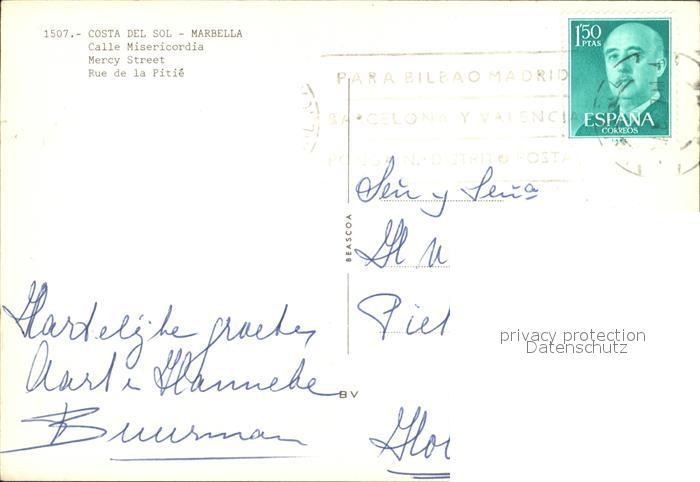 1507.- COSTA DEL SOL - MARBELLA
Calle Misericordia
Mercy Street
Rue de la Pitié
1'50
PTAS
ESPAÑA
CORREOS
PARA BILBAO MADRID
BARCELONA Y VALENCIA
PONGA N.º DISTRITO POSTAL
BEASCOA
Señ y Seña
H
Piet
Hartelijke groeten
Aart + Hanneke
Buurman
BV
privacy protection
Datenschutz